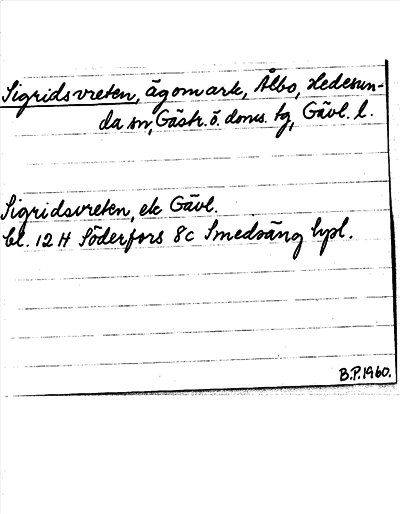 Sigridsvreten, ägomark, Ålbo, Hedesun-
da sn, Gästr. ö. doms. tg, Gävl. l.
Sigridsvreten, ek Gävl.
bl. 12 H Söderfors 8c Smedsäng hpl.
B.P. 1960.